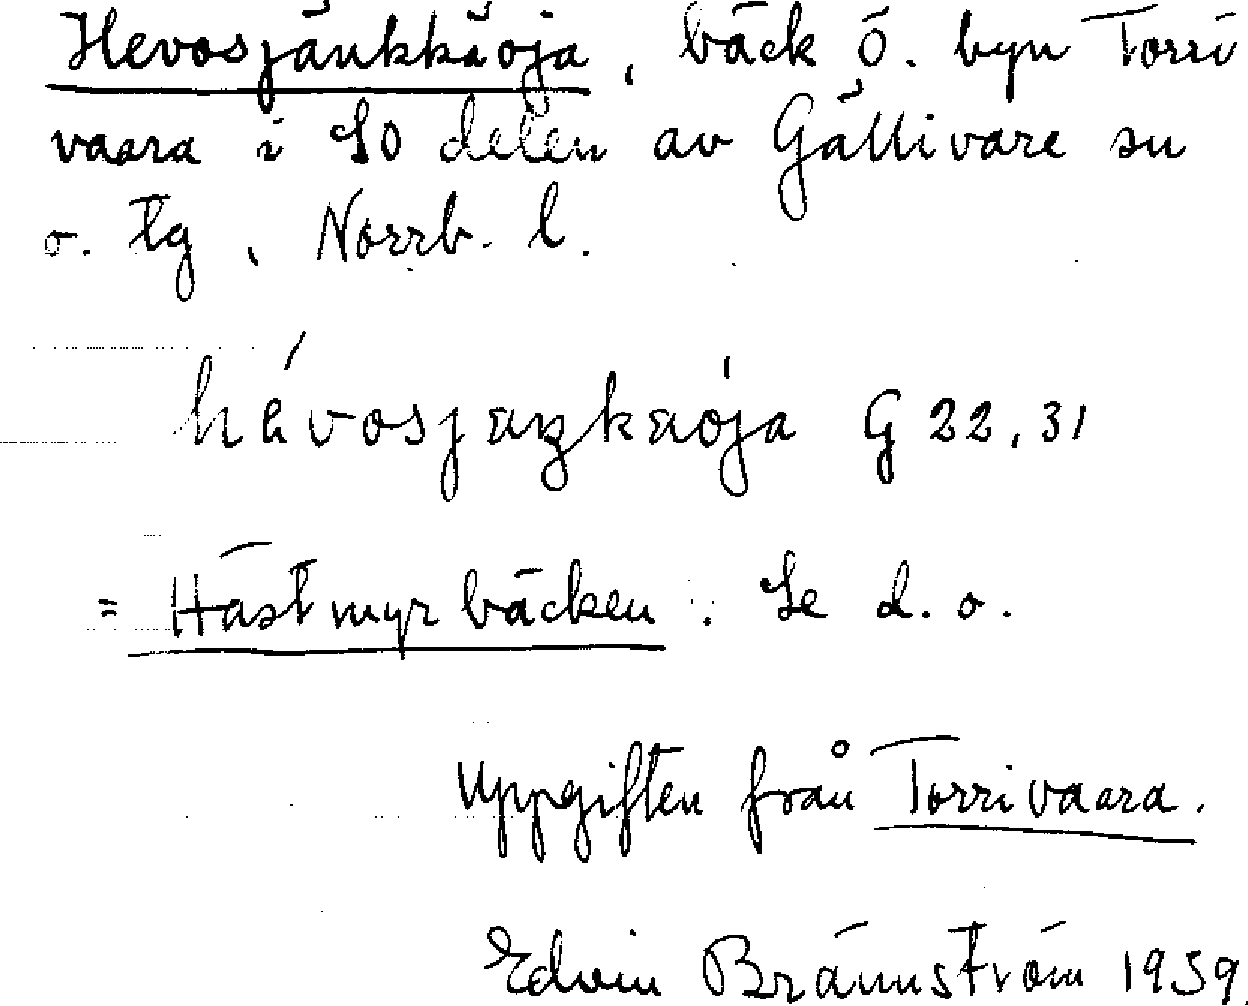 Hevosjänkkäoja, bäck ö. byn Torri
vaara i SO delen av Gällivare sn
o. tg, Norrb. l.
hévosjäŋkäója G 22,31
= Hästmyrbäcken. Se d. o.
Uppgiften från Torrivaara.
Edvin Brännström 1959